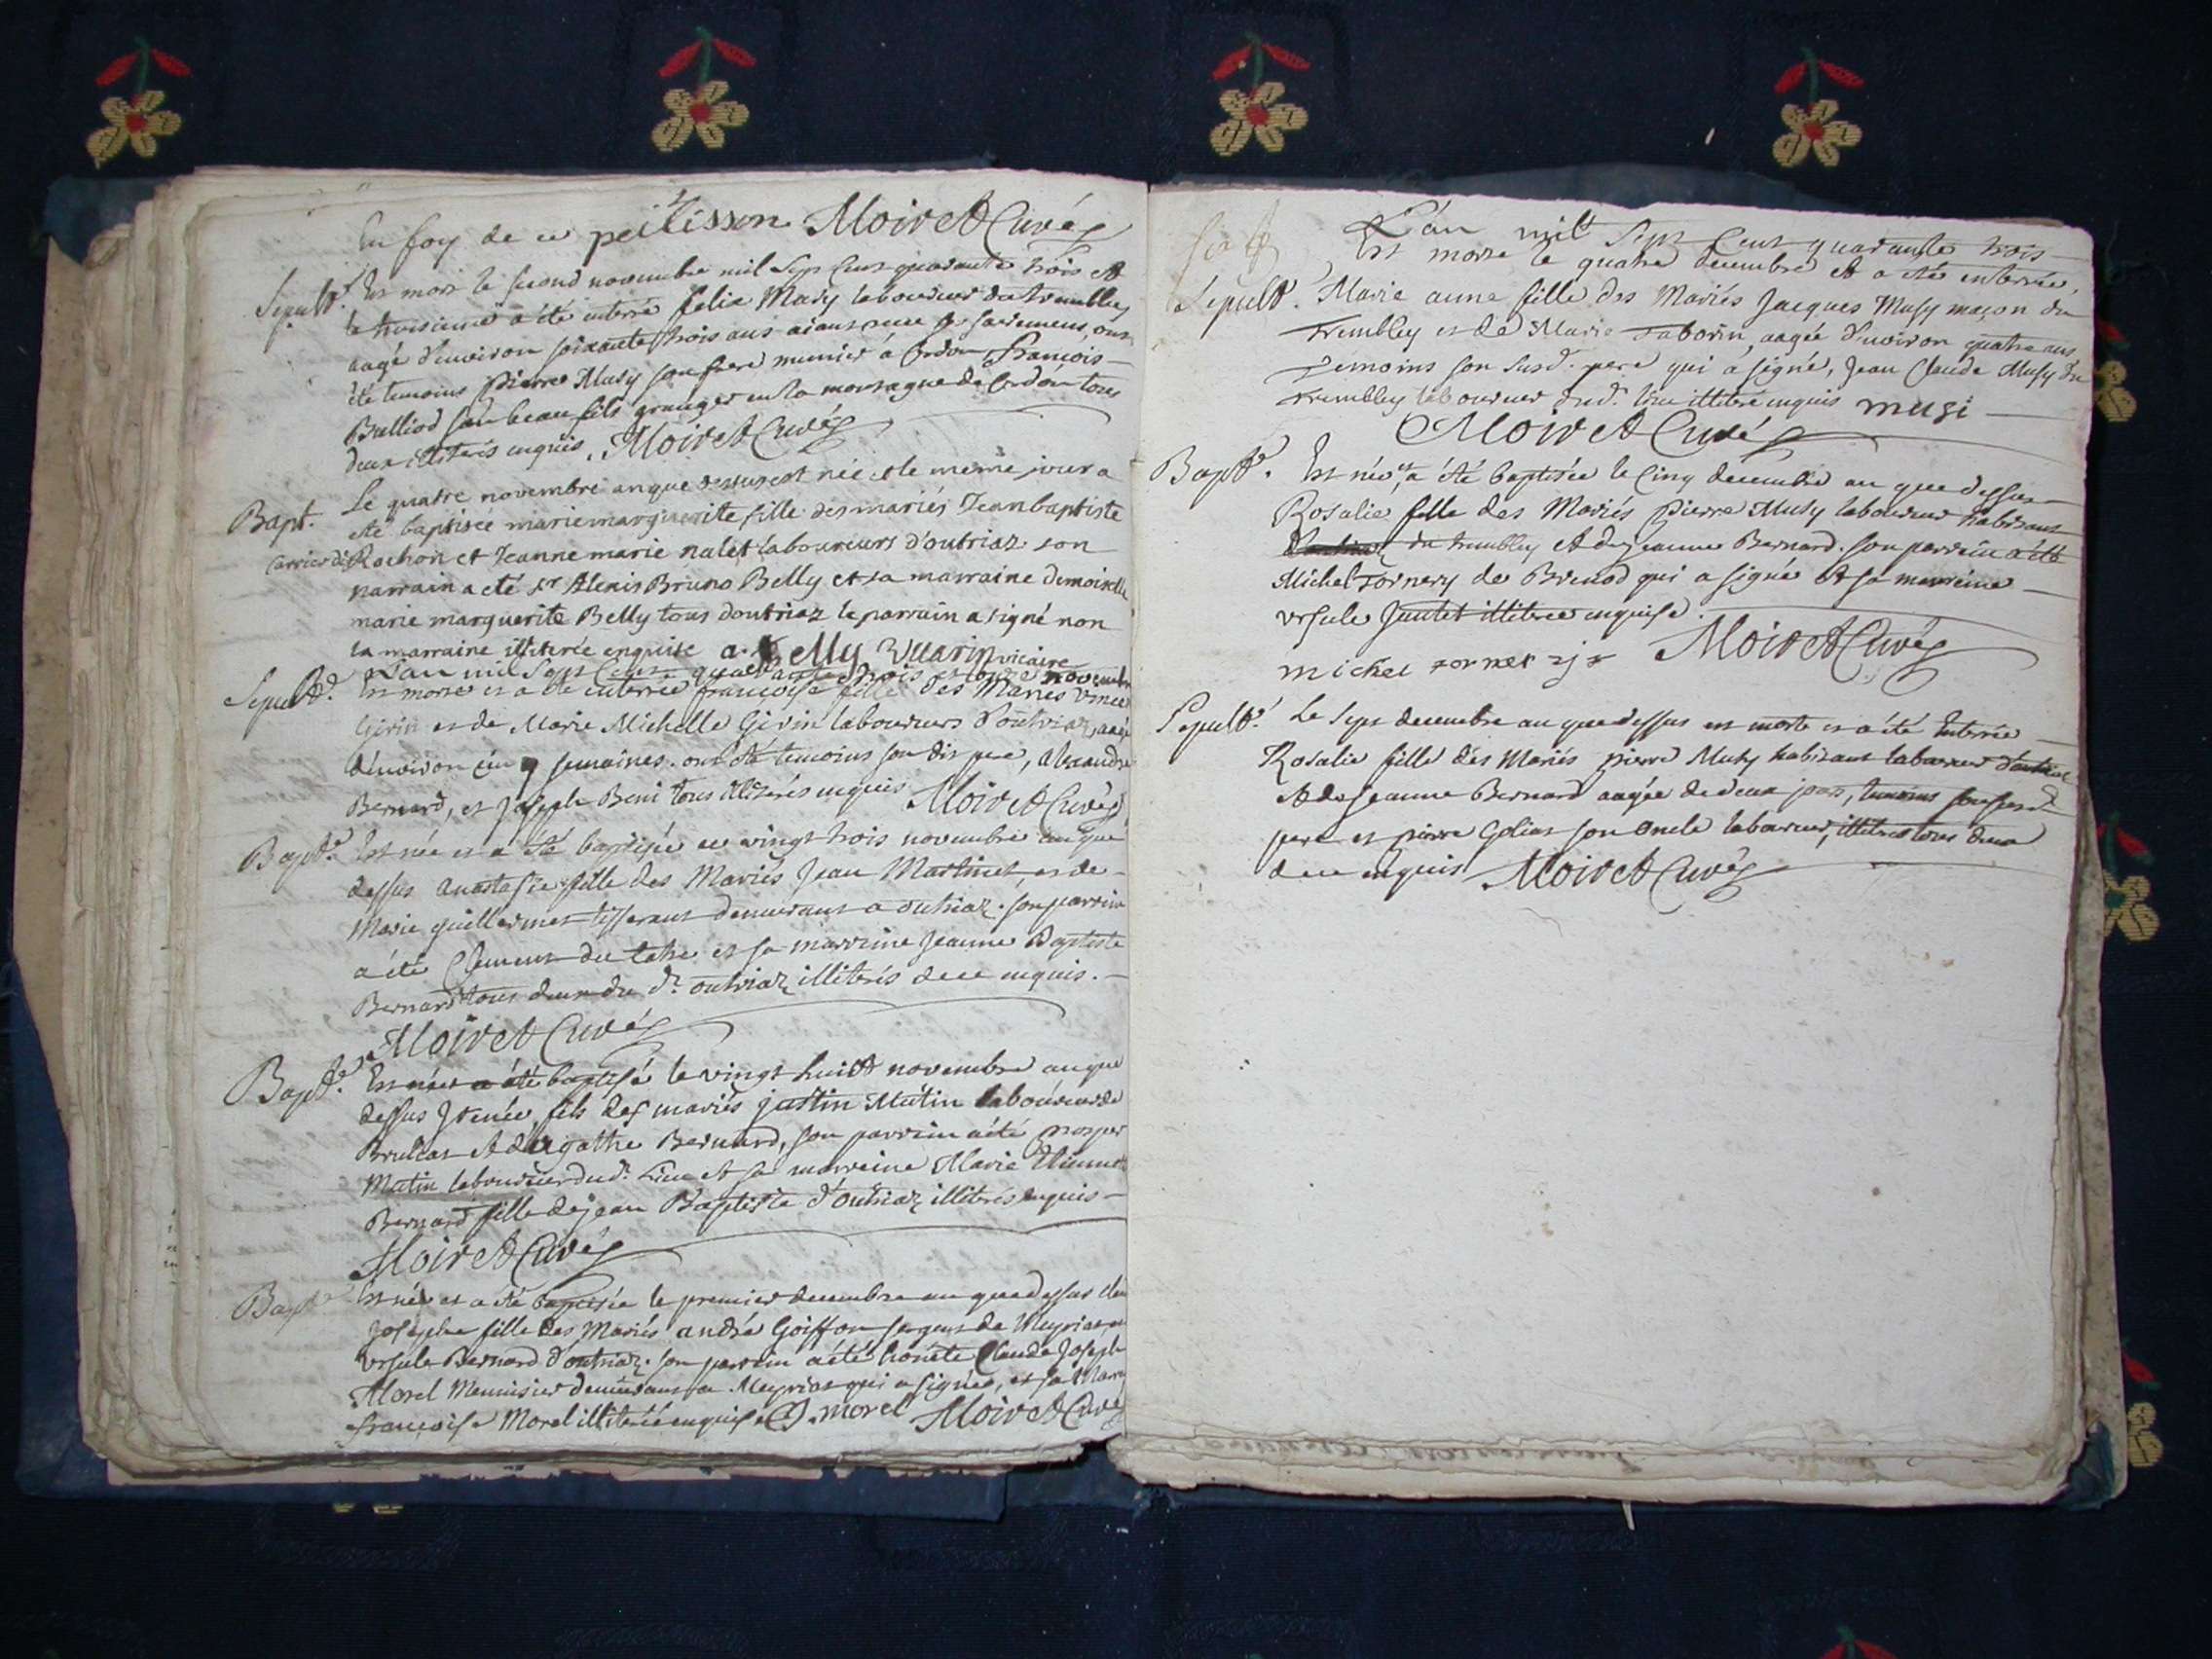 En foy de ce peilisson Moiret Curé
Sepult. Est mort le second novembre mil sept cent quarante trois et
le troisieme a été enterré felix Musy laboureur du trembley
aagé d'environ soixante trois ans aiant receu sacremens, ont
été temoins pierre Musy son frere munier à Cerdon, francois
Bulliod son beau fils granger en la montagne de Cerdon tous
deux illiterés enquis. Moiret Curé
Bapt. Le quatre novembre an que dessus est née et le meme jour a
été baptisée marie marguerite fille des mariés Jean baptiste
Carrier di Rochon et Jeanne marie nalet laboureurs d'outriaz son
parrain a eté sr Alexis Bruno Belly et sa marraine demoiselle
marie marguerite Belly tous d'outriaz le parrain a signé non
la marraine illiterée enquise a. Belly Vuarin vicaire
L'an mil sept cent quarante trois et onze novembre
Sepult. Est morte et a été enterrée francoise fille des Mariés Vince
Girin et de Marie Michelle Girin laboureurs d'outriaz, aagé
d'environ cinq semaines. ont été temoins son dit pere, alexandre
Bernard, et Joseph Beni tous illiterés enquis Moiret Curé
Bapt. Est née et a été baptisée ce vingt trois novembre an que
dessus anastasie fille des Mariés Jean Martinet, et de
Marie guillermet tisserant demeurant a outriaz. son parrein
a été Clement du tatre et sa marreine Jeanne Baptiste
Bernard tous deux du d. outriaz illiterés de ce enquis.
Moiret Curé
Bapt. Est né et a été baptisé le vingt huict novembre an que
dessus Irenée fils des mariés justin Mutin laboureur de
Brulliat et d'agathe Bernard, son parrein a été prosper
Mutin laboureur dud. Lieu et sa marreine Marie Etiennette
Bernard fille de jean Baptiste d'outriaz illiterés enquis
Moiret Curé
Bapt. Est née et a été baptisée le premier decembre an que dessus
Josephe fille des Mariés andré Goiffon sergent de Meyriat et
ursule Bernard d'outriaz. son parrein a été honete Claude Joseph
Morel Menuisier demeurant a Meyriat qui a signé, et sa Marr
francoise Morel illiterée enquise C J. morel Moiret Curé
L'an mil sept cent quarante trois
Est morte le quatre decembre et a été enterrée,
Sepult. Marie anne fille des Mariés Jacques Musy maçon du
Trembley et de Marie Taborin, aagée d'environ quatre ans
Temoins son susd. pere qui a signé, Jean Claude Musy du
Trembley laboureur dud. lieu illiteré enquis musi
Moiret Curé
Bapt. Est née et a été baptisée le Cinq decembre an que dessus
Rosalie fille des Mariés pierre Musy laboureur habitant
d'outriaz du trembley et de jeanne Bernard. son parrein a été
Michel Tornery de Brenod qui a signé et sa marreine
ursule Jantet illiterée enquise.
michel Moiret Curé
Sepult. Le Sept decembre an que dessus est morte et a été Enterrée
Rosalie fille des Mariés pierre Musy habitant laboureur d'outriaz
et de Jeanne Bernard aagée de deux jours, temoins son susd
pere et pierre Golias son Oncle laboureur, illiterés tous deux
de ce enquis Moiret Curé